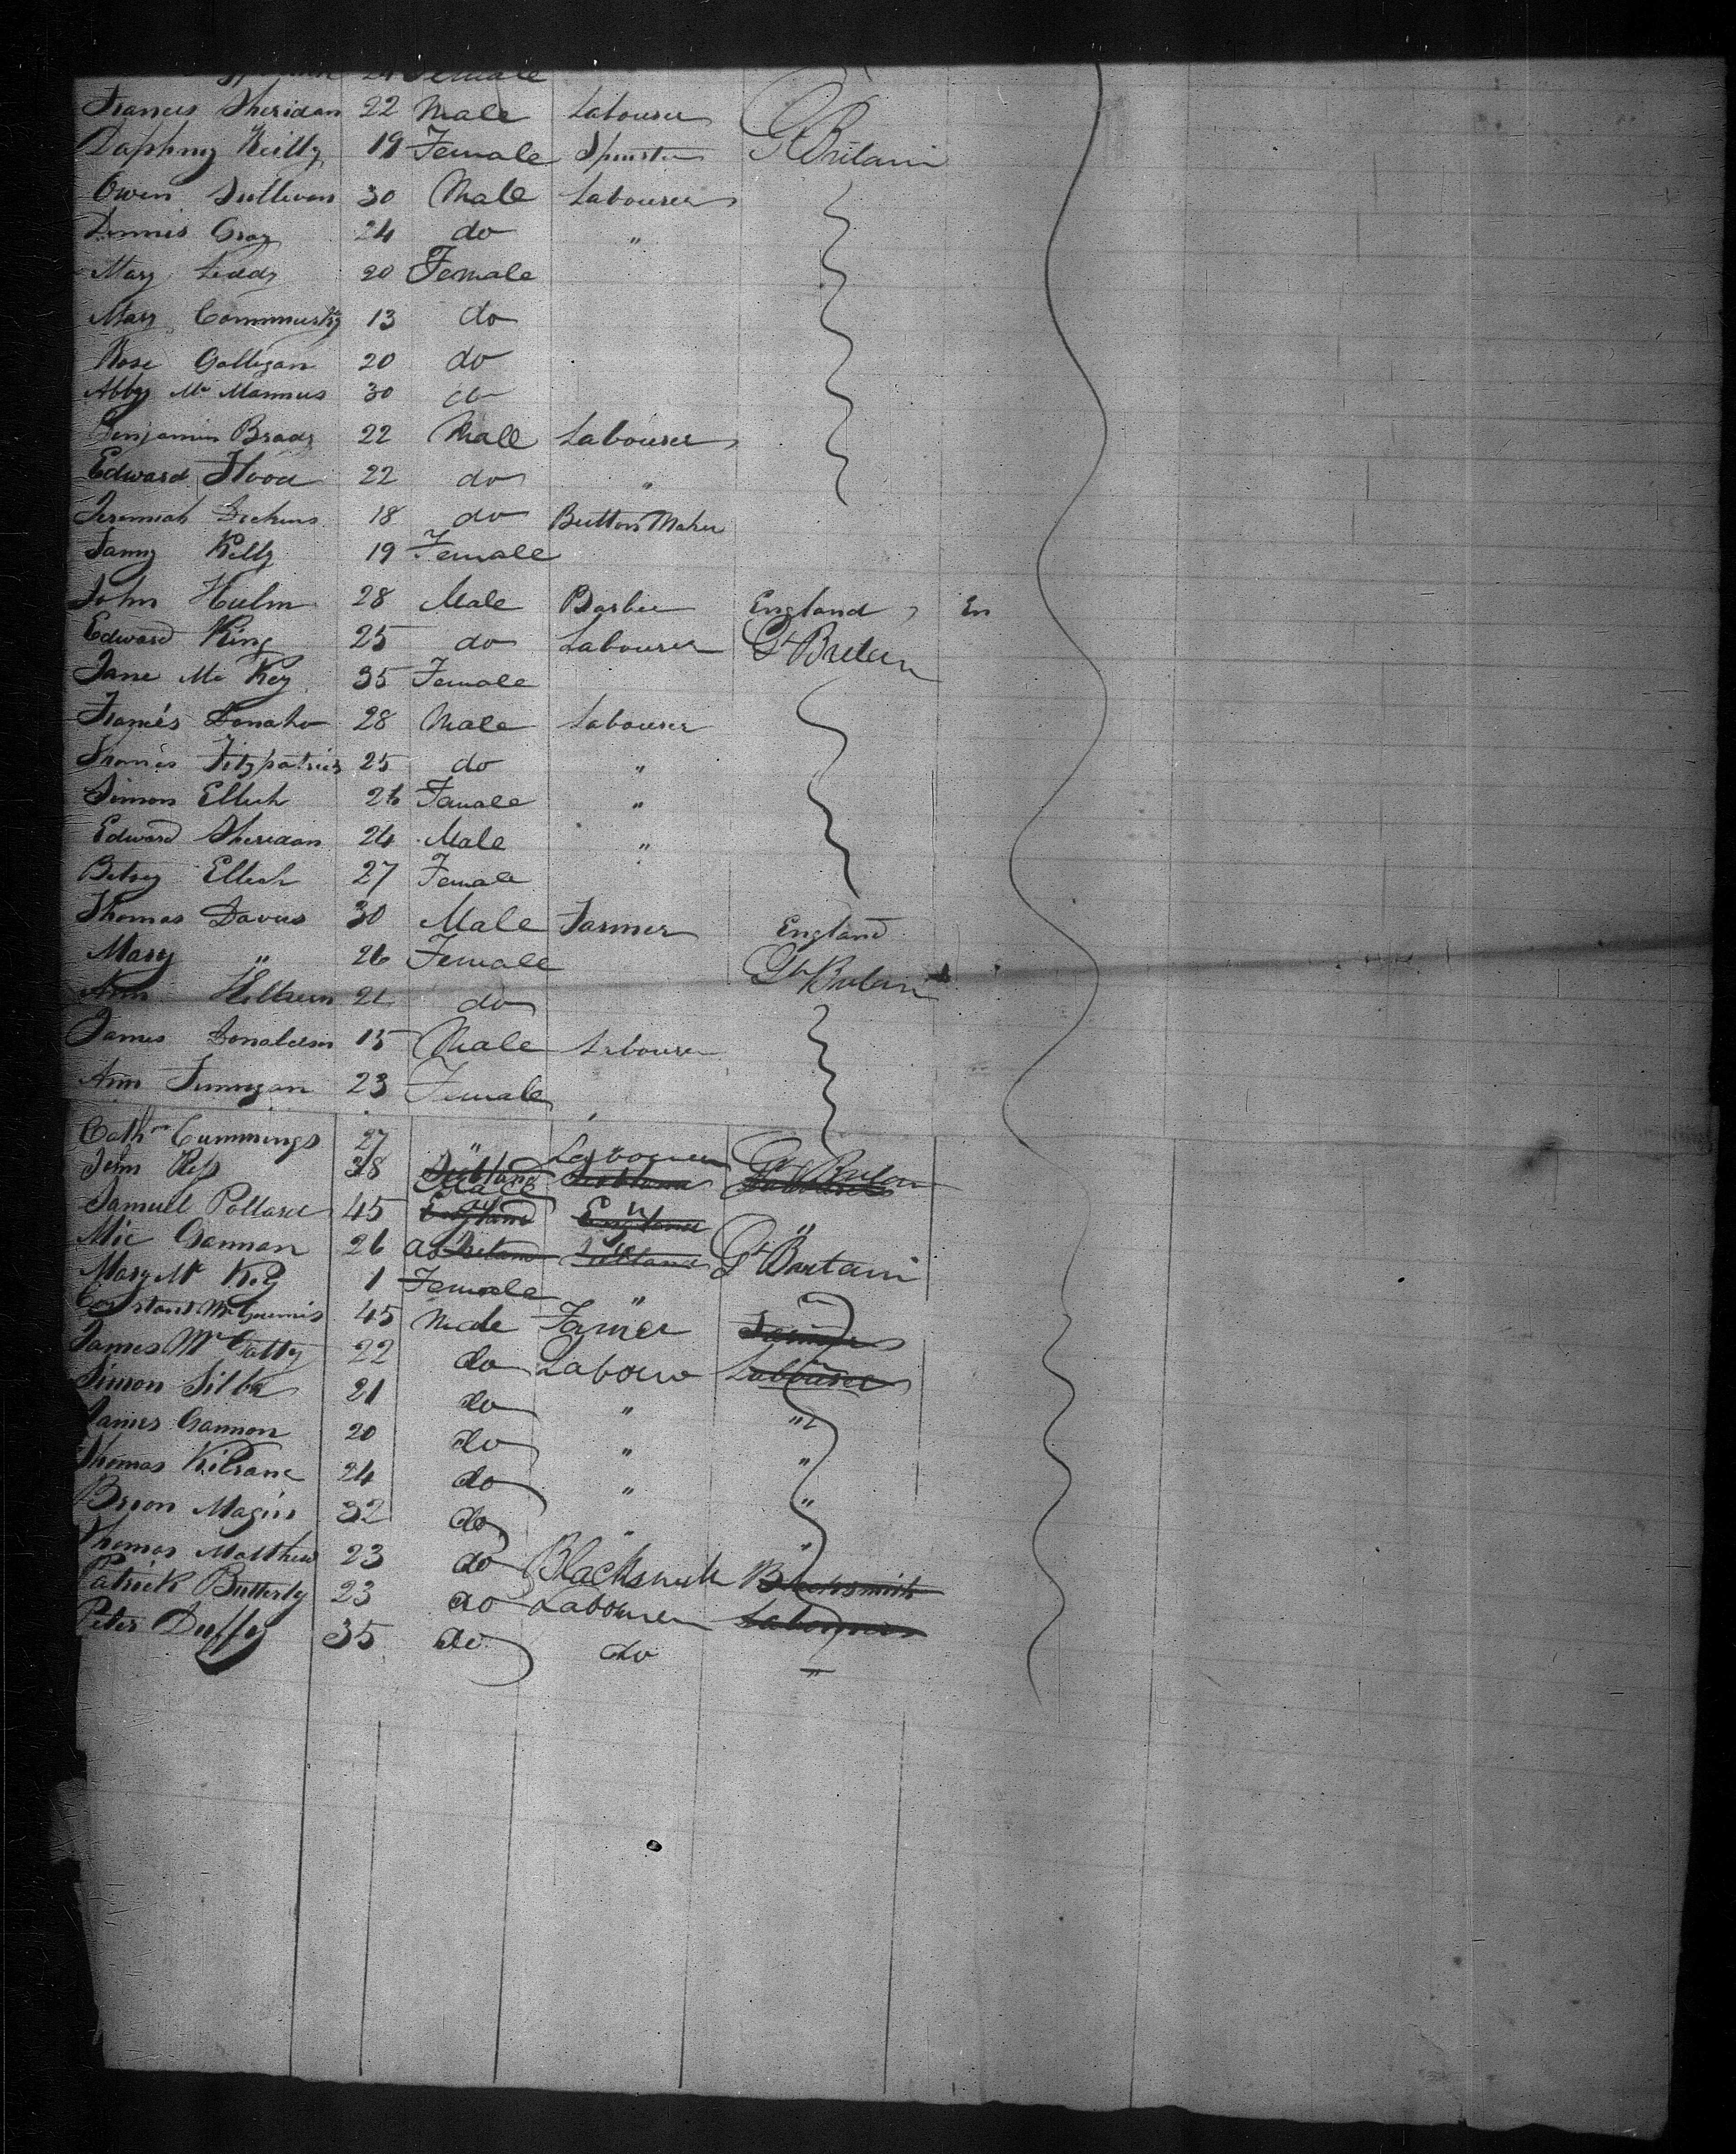 24 Female
Francis Sheridan 22 Male Labourer
Daphny Reilly 19 Female Spinster Gt Britain
Owen Sullivan 30 Male Labourer
Dennis Gray 24 do "
Mary Leddy 20 Female
Mary 13 do
Rose Galligan 20 do
Abby Mc Mannus 30 do
Benjamin Brady 22 Male Labourer
Edward Flood 22 do "
Jeremiah Dickins 18 do Button Maker
Fanny Kelly 19 Female
John Hulm 28 Male Barber England En
Edward King 25 do Labourer Gt Britain
Jane Mc Key 35 Female
Francis Donaho 28 Male Labourer
Francis Fitzpatrick 25 do "
Simon Elleck 26 Female "
Edward Sheridan 24 Male "
Betsey Elleck 27 Female
Thomas Davis 30 Male Farmer England
Mary " 26 Female Gt Britain
Ann 21 do
James Donaldson 15 Male Labourer
Ann Finnigan 23 Female
Cathn Cummings 27 "
John Ress 38 Male Labourer Gt Britain
Samuel Pollard 45 " " "
Mic Gannan 26 do " Gt Britain
Mary Mc Key 1 Female "
45 Male Farmer Farmer
James Mc Gatty 22 do Labourer Labourer
Simon Silba 21 do " "
James Gannon 20 do " "
Thomas Kilrane 24 do " "
Brian Magin 32 do " "
Thomas Matthew 23 do Blacksmith Blacksmith
Patrick Butterly 23 do Labourer Labourer
Peter Duffy 35 do do "